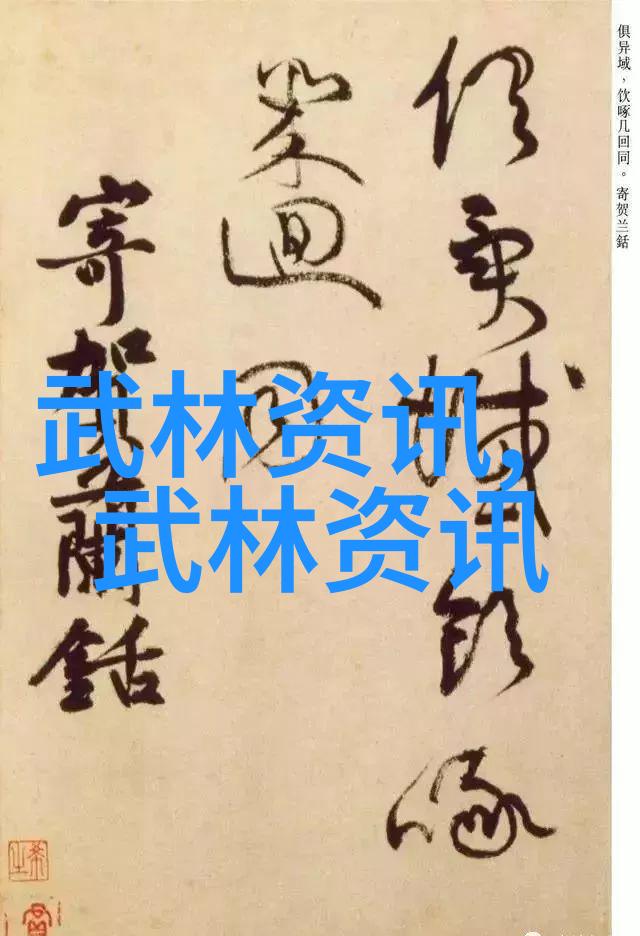 俱异域，饮啄几回同。寄贺兰銛
俱異域飲啄
幾迴同
寄賀蘭銛
武林资讯,
武林资讯